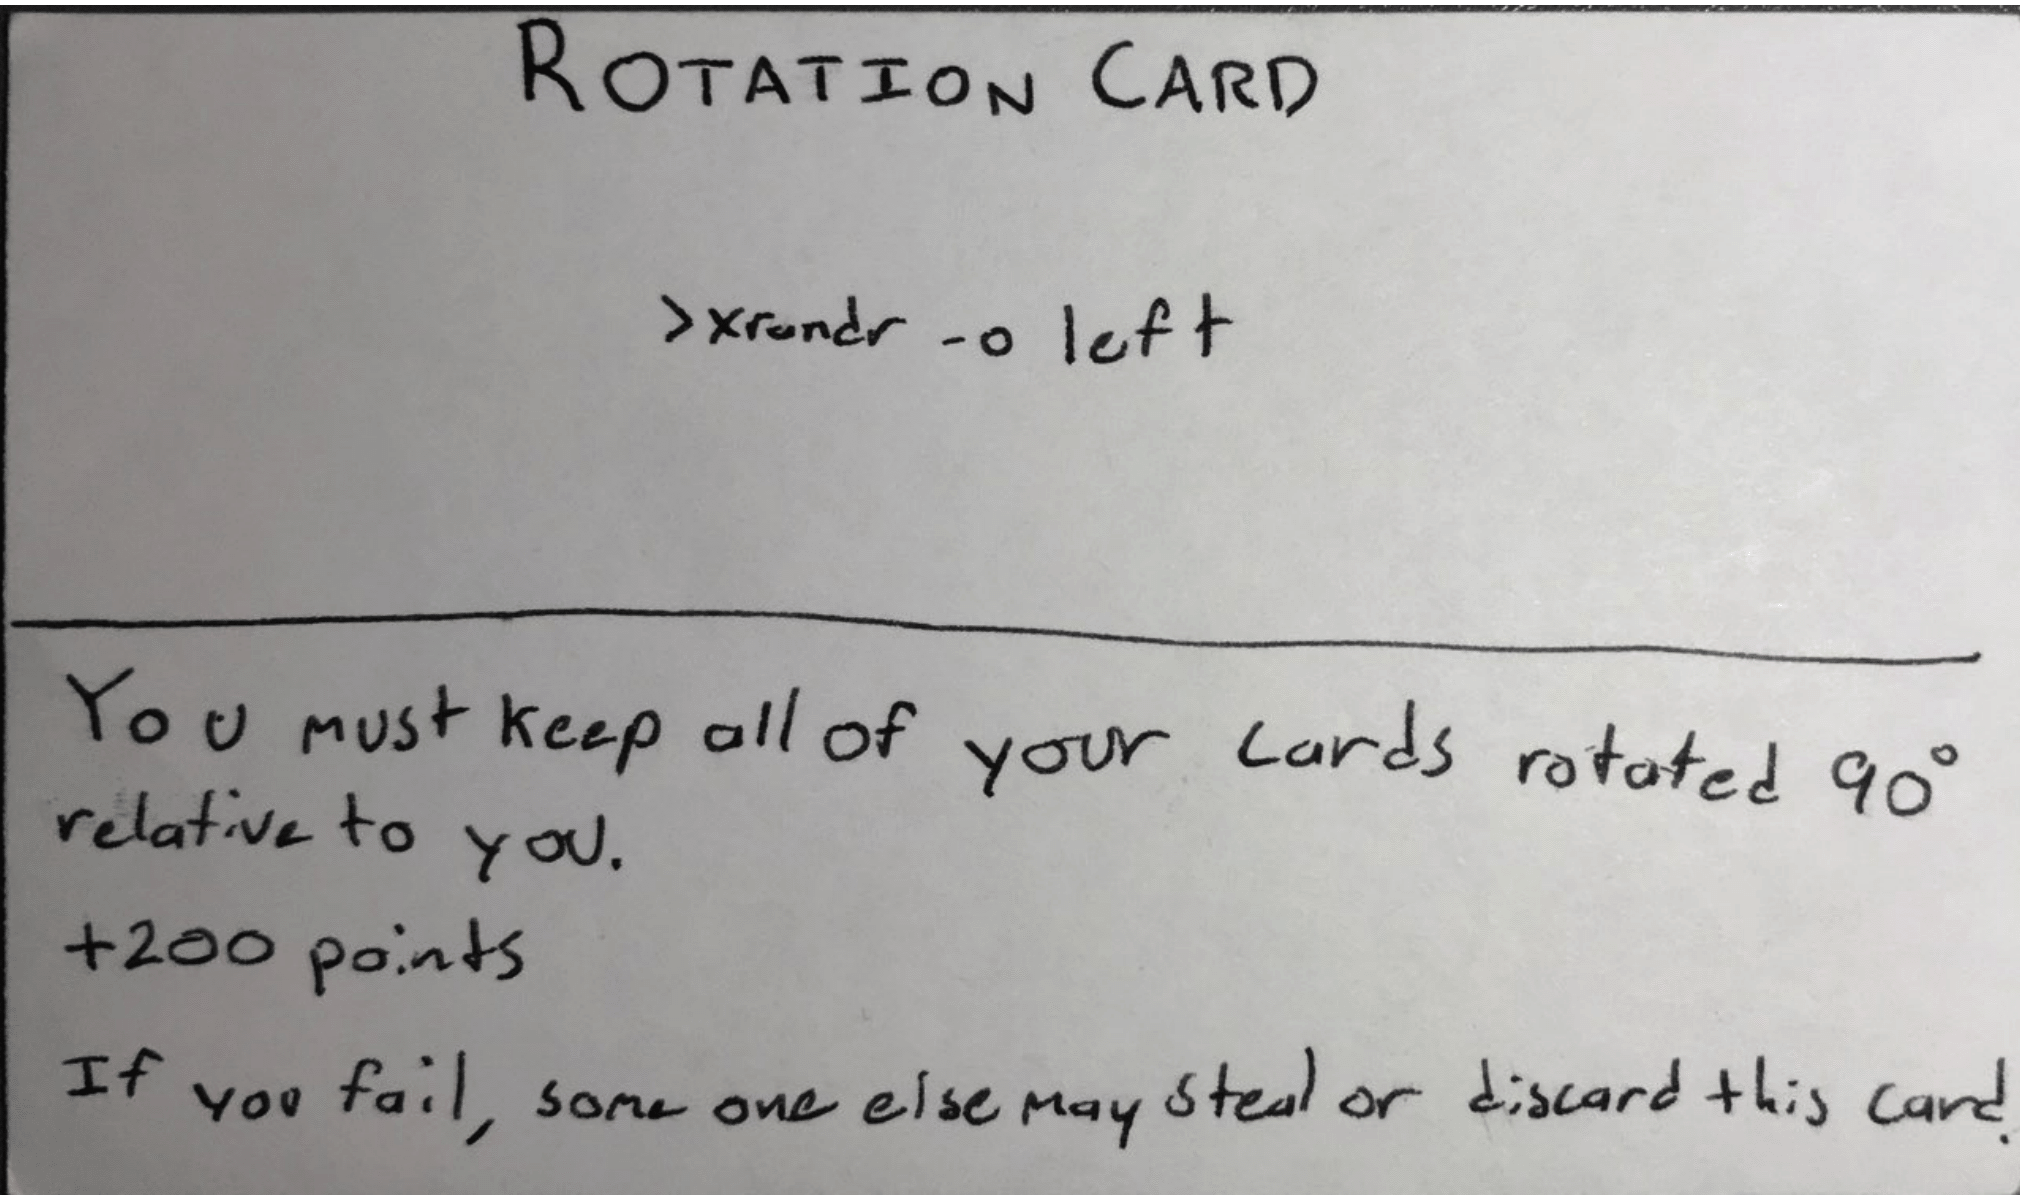 ROTATION CARD
>xrandr -o left
You must keep all of your cards rotated 90°
relative to you.
+200 points
If you fail, some one else may steal or discard this card.